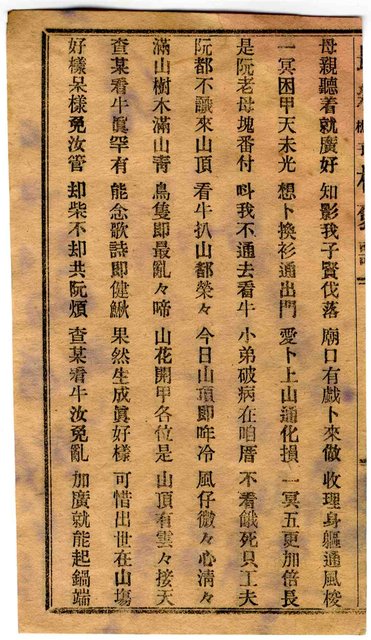 母親聽着就廣好 知影我子賢伐落 廟口有戲卜來做 收理身軀通風梭
一冥困甲天未光 想卜換衫通出門 愛卜上山通化損 一冥五更加倍長
是阮老母塊番付 呌我不通去看牛 小弟破病在咱厝 不看餓死只工夫
阮都不識來山頂 看牛扒山都榮々 今日山頂即哖冷 風仔微々心淸々
滿山樹木滿山靑 鳥隻即最亂々啼 山花開甲各位是 山頂有雲々接天
查某看牛眞罕有 能念歌詩即健鰍 果然生成眞好樣 可惜出世在山塲
好樣呆樣免汝管 却柴不却共阮煩 查某看牛汝免亂 加廣就能起鍋端